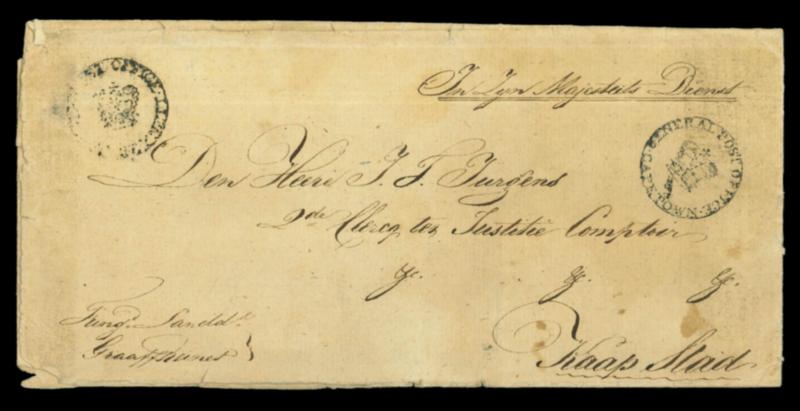 In Zyn Majesteits Dienst
POST OFFICE
GENERAL POST OFFICE · CAPE TOWN ·
Den Heere J. F. Jurgens
2de Clercq ter Justitie Comptoir
&c. &c. &c.
Fung. Landd.t
Graaffreinet
Kaap Stad